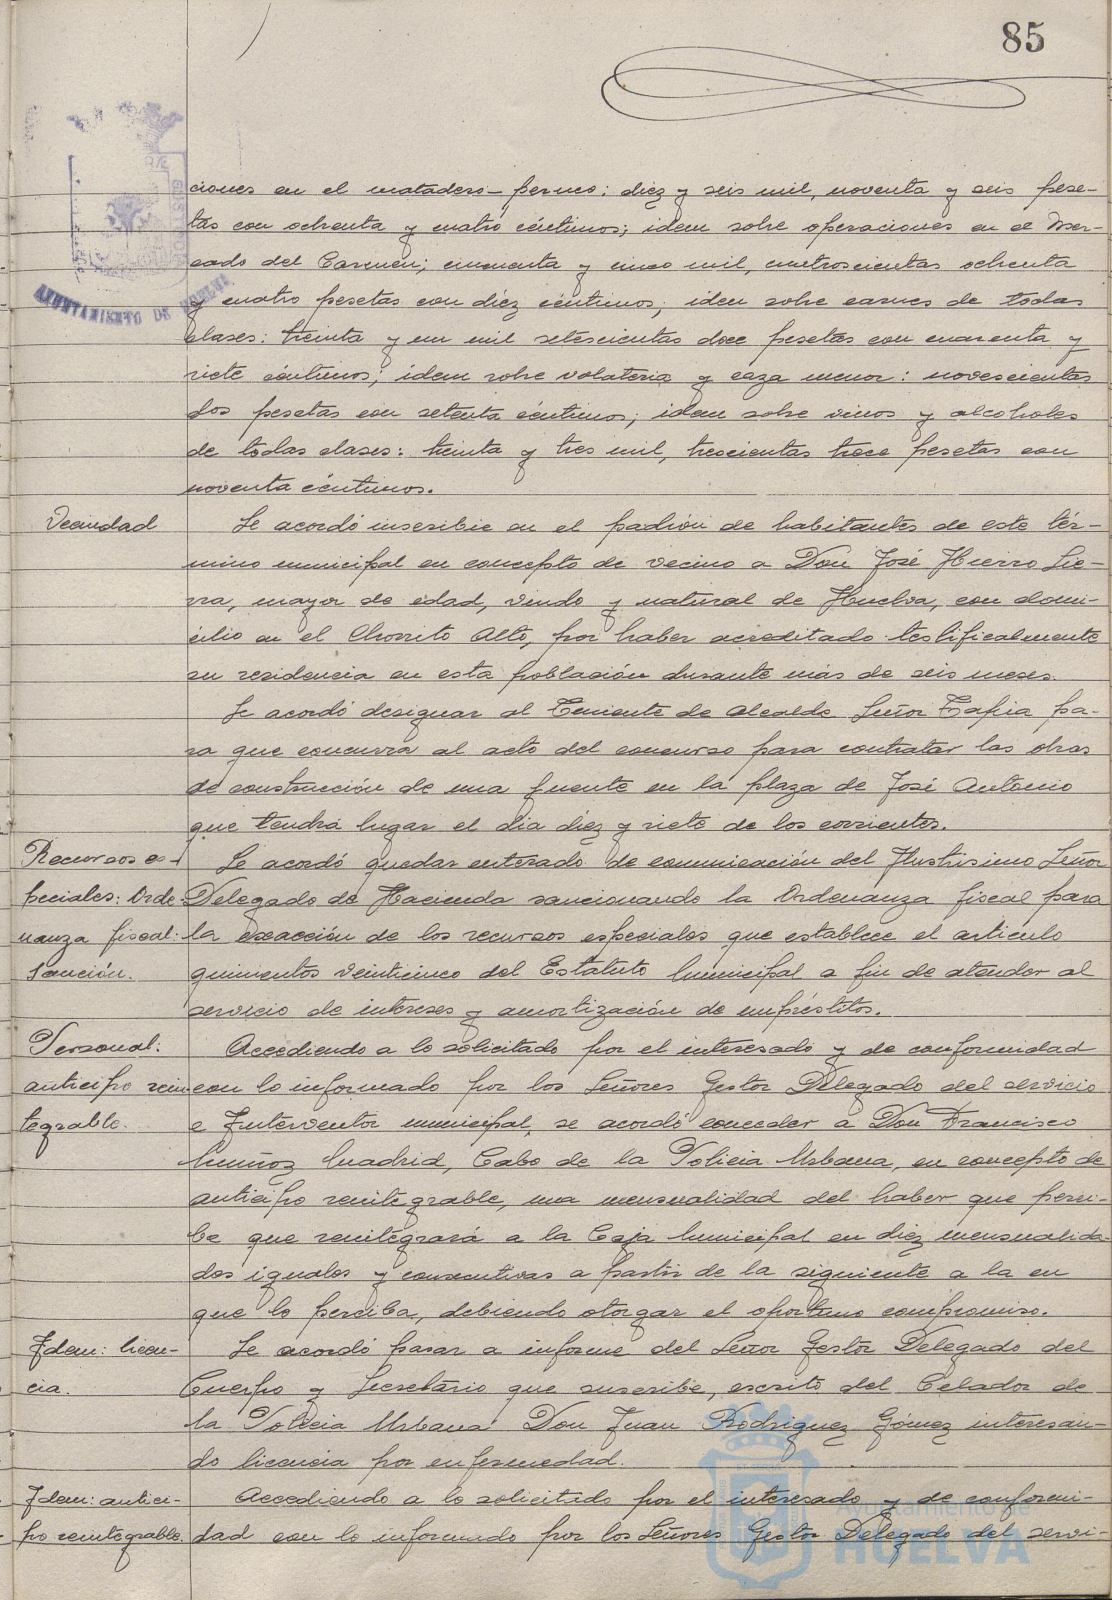 85
AYUNTAMIENTO DE HUELVA
ciones en el matadero- perneo: diez y seis mil, noventa y seis pese-
tas con ochenta y cuatro céntimos; idem sobre operaciones en el Mer-
cado del Carmen; cincuenta y cinco mil, cuatroscientas ochenta
y cuatro pesetas con diez céntimos; idem sobre carnes de todas
clases: treinta y un mil setescientas doce pesetas con cuarenta y
siete céntimos; idem sobre volateria y caza menor: novescientas
dos pesetas con setenta céntimos; idem sobre vinos y alcoholes
de todas clases: treinta y tres mil, trescientas trece pesetas con
noventa céntimos.
Vecindad
Se acordó inscribir en el padrón de habitantes de este tér-
mino municipal en concepto de vecino a Don José Hierro Sie-
rra, mayor de edad, viudo y natural de Huelva, con domi-
cilio en el Chorrito Alto, por haber acreditado testificalmente
su residencia en esta población durante más de seis meses.
Se acordó designar al Teniente de Alcalde Señor Tapia pa-
ra que concurra al acto del concurso para contratar las obras
de construcción de una fuente en la plaza de José Antonio
que tendrá lugar el dia diez y siete de los corrientes.
Recursos es-
peciales: Orde-
nanza fiscal:
Sanción.
Se acordó quedar enterado de comunicación del Ilustrisimo Señor
Delegado de Hacienda sancionando la Ordenanza fiscal para
la exacción de los recursos especiales que establece el articulo
quinientos veinticinco del Estatuto Municipal a fin de atender al
servicio de intereses y amortización de empréstitos.
Personal:
anticipo rein-
tegrable.
Accediendo a lo solicitado por el interesado y de conformidad
con lo informado por los Señores Gestor Delegado del servicio
e Interventor municipal, se acordó conceder a Don Francisco
Muñoz Madrid, Cabo de la Policia Urbana, en concepto de
anticipo reintegrable, una mensualidad del haber que perci-
be que reintegrará a la Caja Municipal en diez mensualida-
des iguales y consecutivas a partir de la siguiente a la en
que lo perciba, debiendo otorgar el oportuno compromiso.
Idem: licen-
cia.
Se acordó pasar a informe del Señor Gestor Delegado del
Cuerpo y Secretario que suscribe, escrito del Celador de
la Policia Urbana Don Juan Rodriguez Gómez interesan-
do licencia por enfermedad.
Idem: antici-
po reintegrable.
Accediendo a lo solicitado por el interesado y de conformi-
dad con lo informado por los Señores Gestor Delegado del servi-
Ayuntamiento de
HUELVA